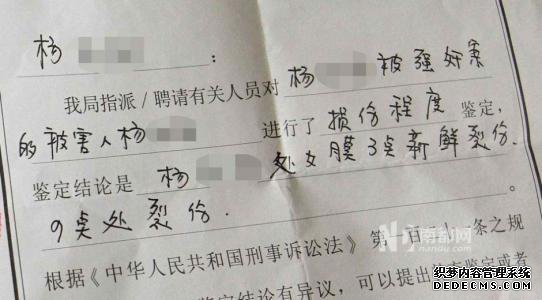 杨 :
我局指派/聘请有关人员对杨 被强奸案
的被害人杨 进行了损伤程度鉴定,
鉴定结论是 杨 处女膜3点新鲜裂伤.
9点处裂伤. 。
南都网
nandu.com
根据《中华人民共和国刑事诉讼法》第 条之规
鉴定结论有异议,可以提出 鉴定或者
织梦内容管理系统